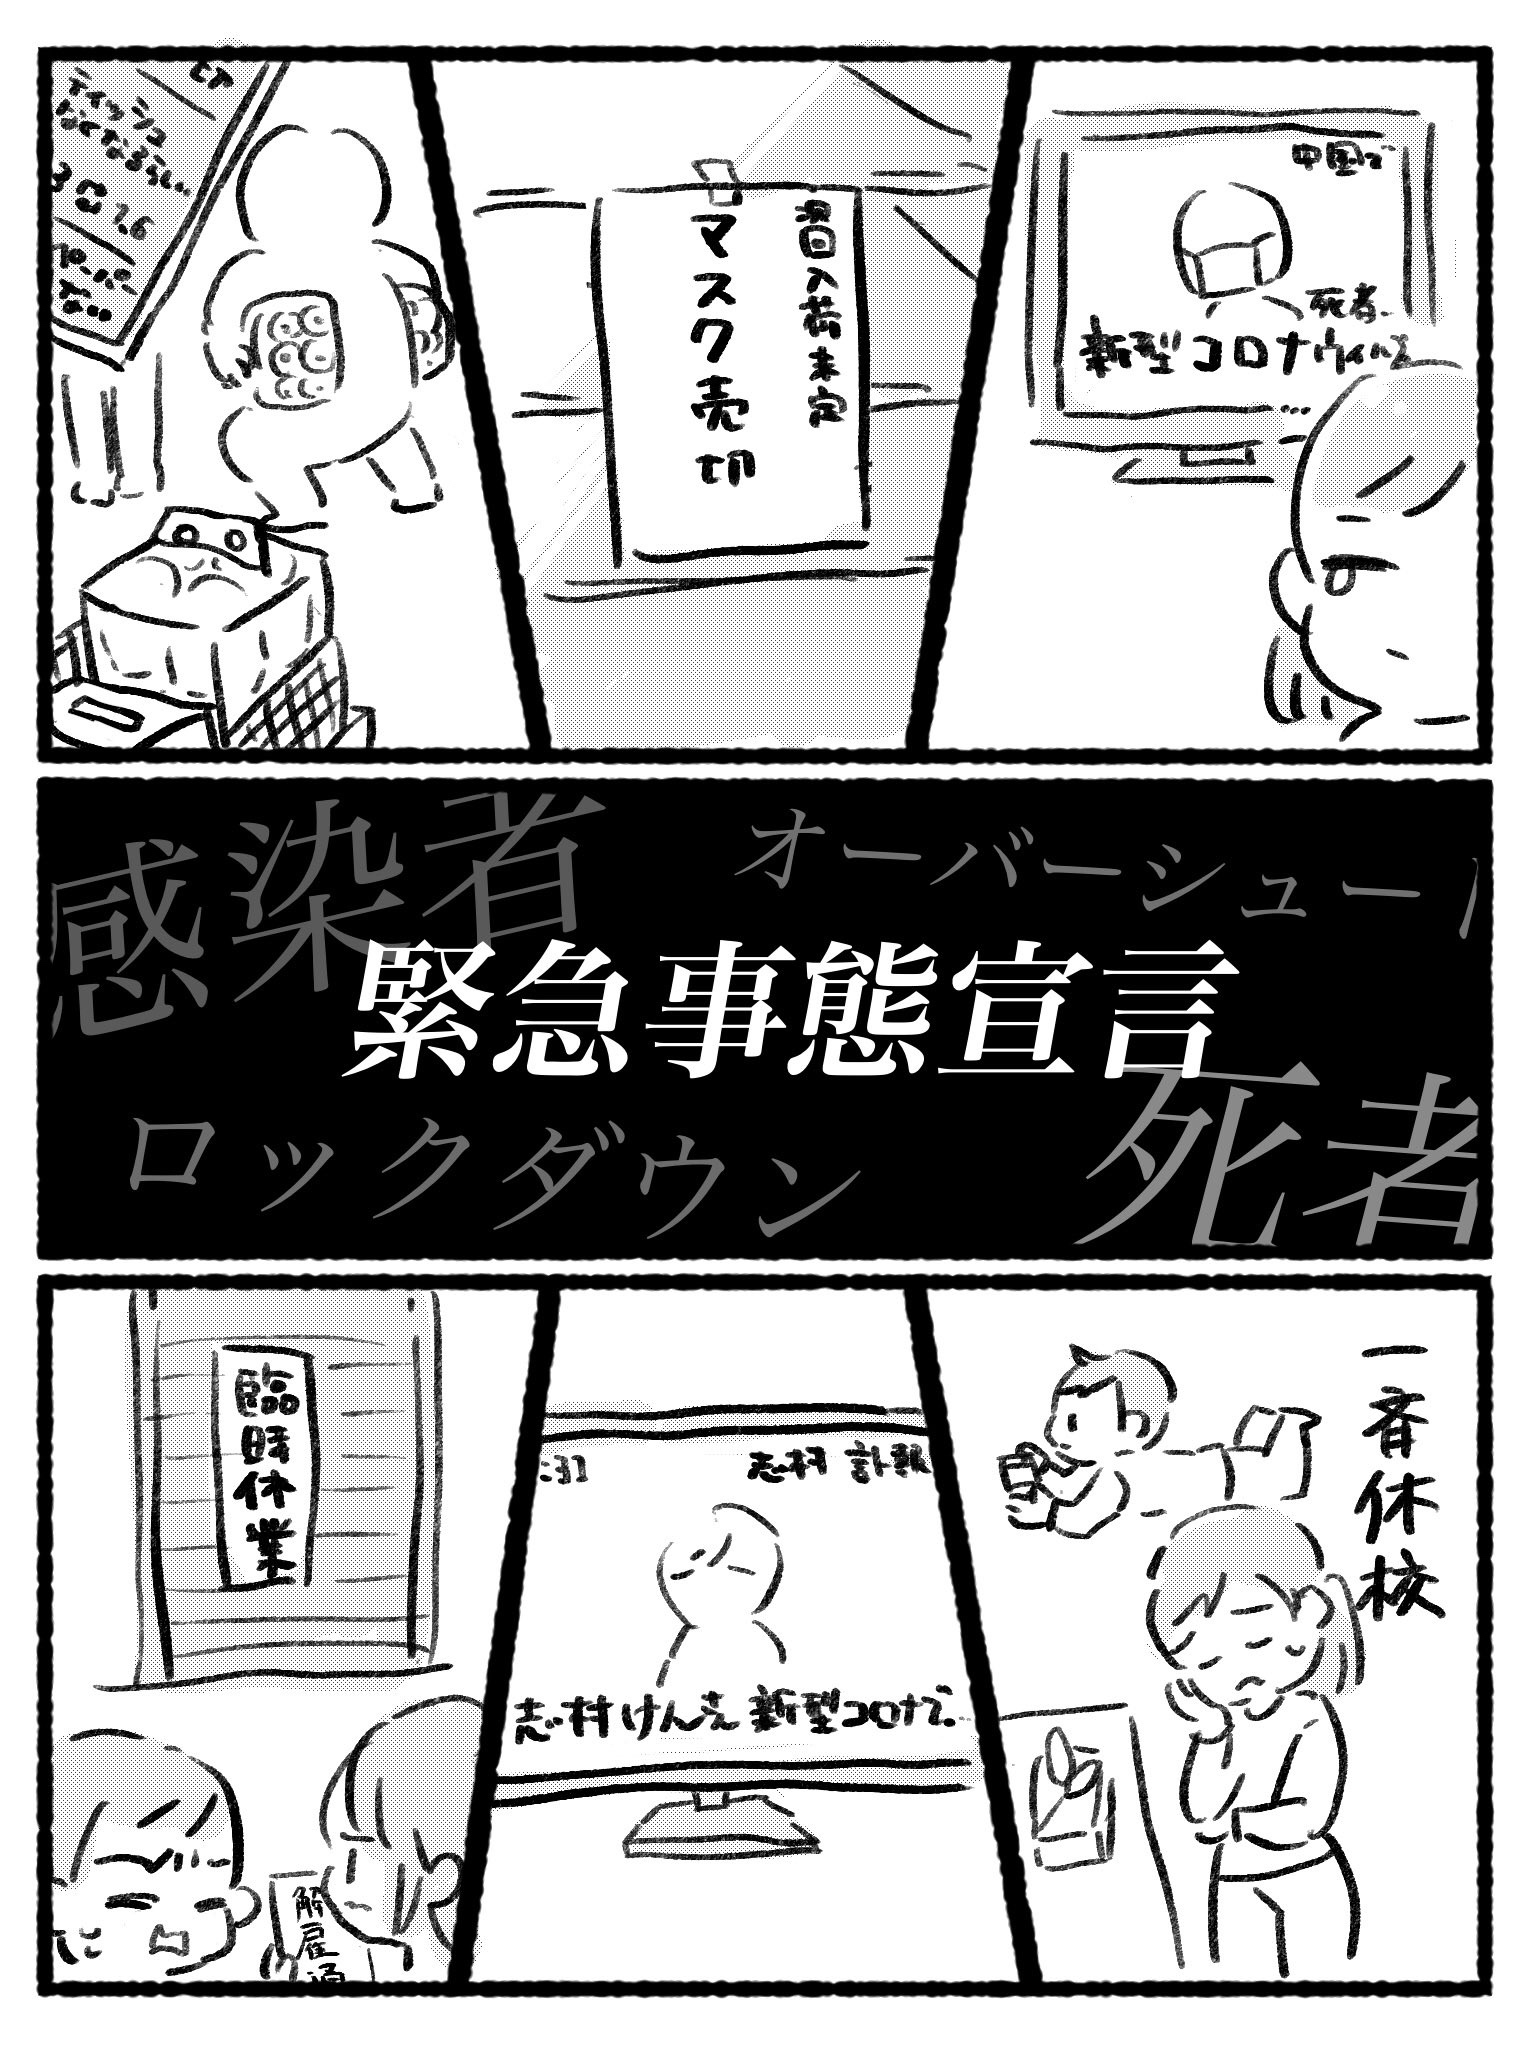 中国で
死者
新型コロナウイルス
次回入荷未定
マスク売切
ティッシュ
なくなるらしい…
感染者
オーバーシュート
緊急事態宣言
ロックダウン
死者
一斉休校
:31
志村 訃報
志村けんさん 新型コロナで
臨時休業
解雇通